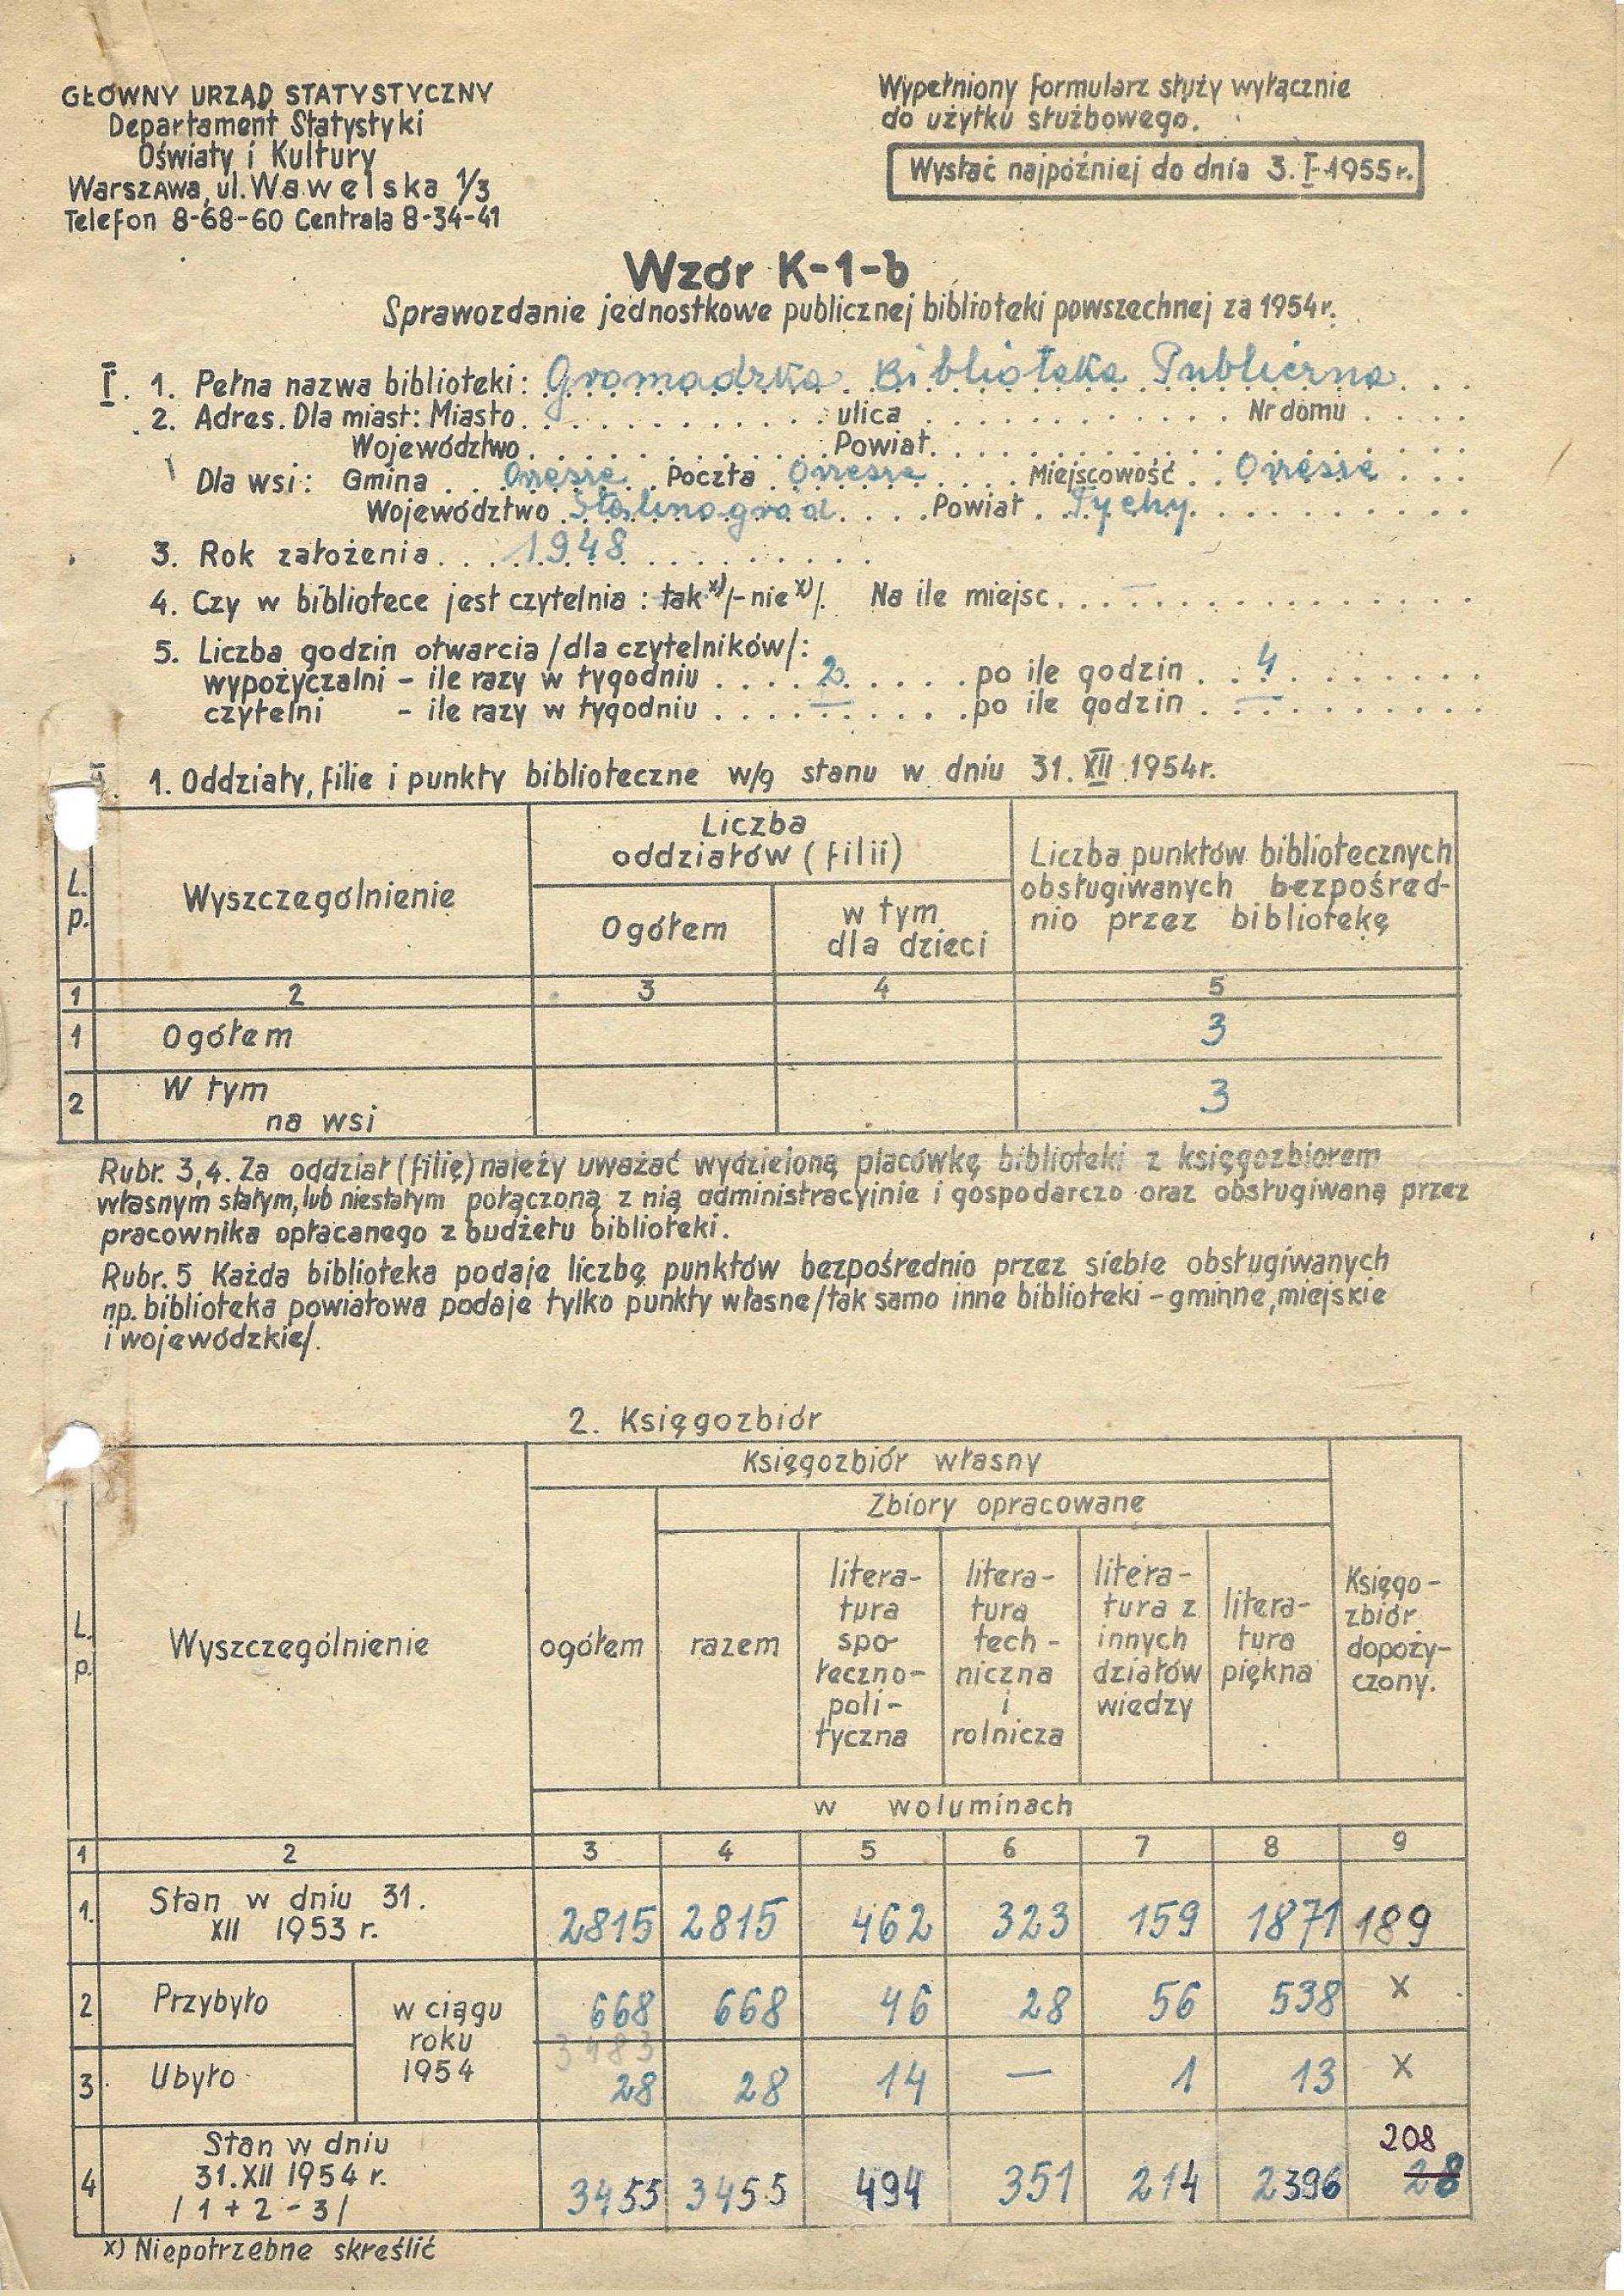 GŁÓWNY URZĄD STATYSTYCZNY
Departament Statystyki
Oświaty i Kultury
Warszawa, ul. Wawelska 1/3
Telefon 8-68-60 Centrala 8-34-41
Wypełniony formularz służy wyłącznie
do użytku służbowego.
Wysłać najpóźniej do dnia 3.I-1955r.
Wzór K-1-b
Sprawozdanie jednostkowe publicznej biblioteki powszechnej za 1954r.
I. 1. Pełna nazwa biblioteki: Gromadzka Biblioteka Publiczna
2. Adres. Dla miast: Miasto . . . ulica . . . Nr domu . . .
Województwo . . . Powiat . . .
Dla wsi: Gmina . . Orzesze . . Poczta . Orzesze . . . Miejscowość . . Orzesze . . .
Województwo . Stalinogród . . . . Powiat . Tychy . . .
3. Rok założenia . . . 1948 . . .
4. Czy w bibliotece jest czytelnia : tak x)/-nie x)/. Na ile miejsc . . . — . . .
5. Liczba godzin otwarcia /dla czytelników/:
wypożyczalni - ile razy w tygodniu . . . . 2 . . . . . po ile godzin . . 4 . . .
czytelni - ile razy w tygodniu . . . — . . . po ile godzin . . — . . .
1. Oddziały, filie i punkty biblioteczne w/g stanu w dniu 31. XII 1954r.
L. p. Wyszczególnienie Liczba oddziałów (filii) Liczba punktów bibliotecznych
obsługiwanych bezpośred-
nio przez bibliotekę
Ogółem w tym
dla dzieci
1 2 3 4 5
1 Ogółem 3
2 W tym
na wsi 3
Rubr. 3,4. Za oddział (filię) należy uważać wydzieloną placówkę biblioteki z księgozbiorem
własnym stałym, lub niestałym połączoną z nią administracyjnie i gospodarczo oraz obsługiwaną przez
pracownika opłacanego z budżetu biblioteki.
Rubr. 5 Każda biblioteka podaje liczbę punktów bezpośrednio przez siebie obsługiwanych
np. biblioteka powiatowa podaje tylko punkty własne /tak samo inne biblioteki - gminne, miejskie
i wojewódzkie/.
2. Księgozbiór
Księgozbiór własny
Zbiory opracowane
L. p. Wyszczególnienie
ogółem
razem
litera-
tura
spo-
łeczno-
poli-
tyczna
litera-
tura
tech-
niczna
i
rolnicza
litera-
tura z
innych
działów
wiedzy
litera-
tura
piękna
Księgo-
zbiór
dopoży-
czony.
w woluminach
1 2 3 4 5 6 7 8 9
1. Stan w dniu 31.
XII 1953 r. 2815 2815 462 323 159 1871 189
2 Przybyło 668 668 46 28 56 538 x
w ciągu
roku
1954
3483
3 Ubyło 28 28 14 — 1 13 x
208
4 Stan w dniu
31.XII 1954 r.
/ 1 + 2 - 3 / 3455 3455 494 351 214 2396 28
x) Niepotrzebne skreślić